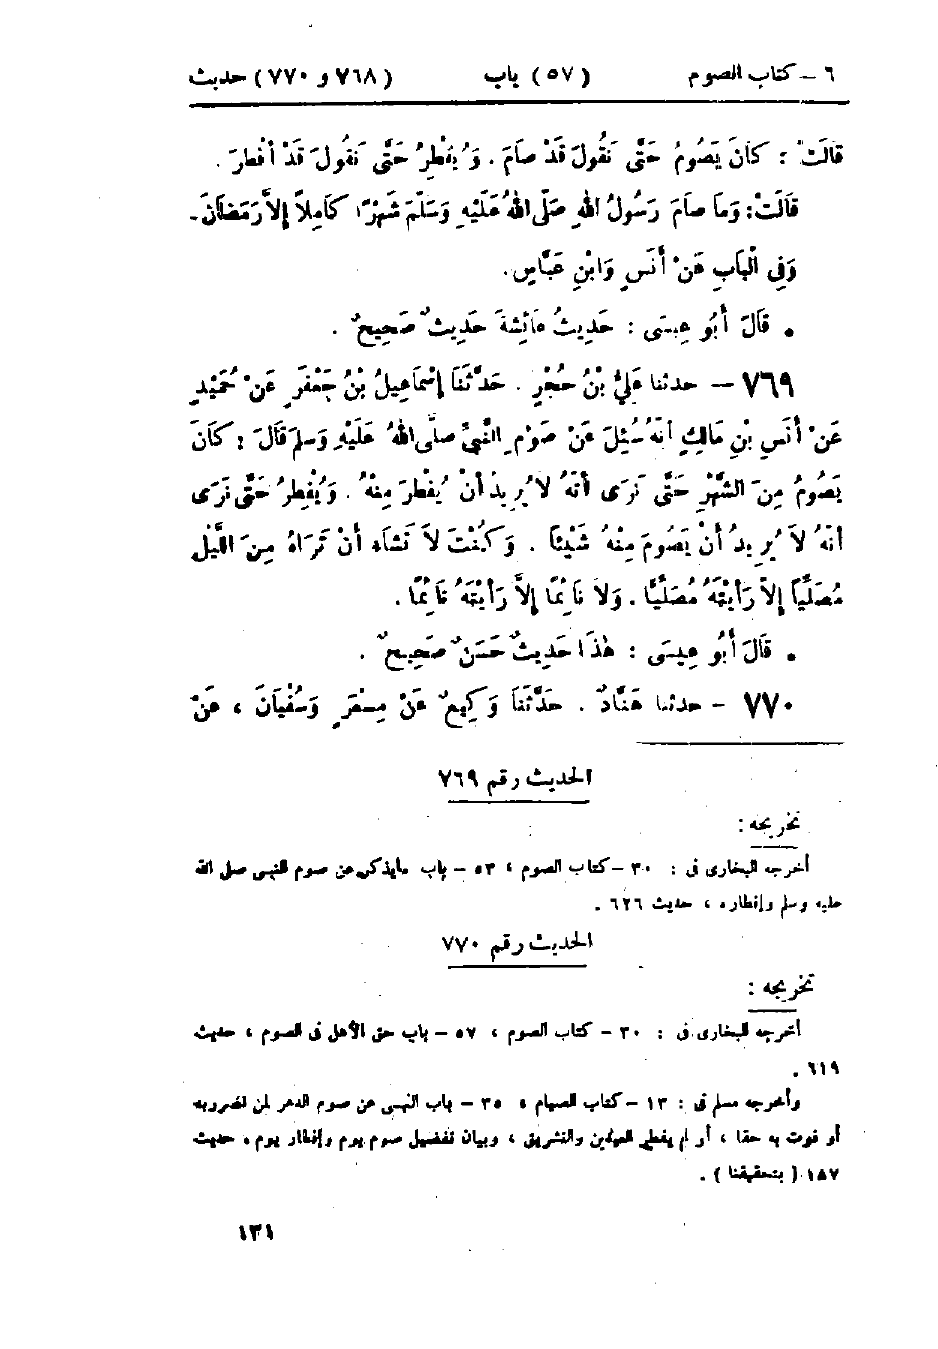 ٦ – كتاب الصوم (٥٧) باب (٧٦٨ و ٧٧٠) حديث
قَالَتْ : كَانَ يَصُومُ حَتَّى نَقُولَ قَدْ صَامَ . وَيُفْطِرُ حَتَّى نَقُولَ قَدْ أَفْطَرَ .
قَالَتْ : وَمَا صَامَ رَسُولُ اللهِ صَلَّى اللهُ عَلَيْهِ وَسَلَّمَ شَهْرًا كَامِلاً إِلاَّ رَمَضَانَ .
وَفِي الْبَابِ عَنْ أَنَسٍ وَابْنِ عَبَّاسٍ .
• قَالَ أَبُو عِيسَى : حَدِيثُ عَائِشَةَ حَدِيثٌ صَحِيحٌ .
٧٦٩ – حدثنا عَلِيُّ بْنُ حُجْرٍ . حَدَّثَنَا إِسْمَاعِيلُ بْنُ جَعْفَرٍ عَنْ حُمَيْدٍ
عَنْ أَنَسِ بْنِ مَالِكٍ أَنَّهُ سُئِلَ عَنْ صَوْمِ النَّبِيِّ صلَّى اللهُ عَلَيْهِ وَسلمَ قَالَ : كَانَ
يَصُومُ مِنَ الشَّهْرِ حَتَّى نَرَى أَنَّهُ لاَ يُرِيدُ أَنْ يُفْطِرَ مِنْهُ . وَيُفْطِرُ حَتَّى نَرَى
أَنَّهُ لاَ يُرِيدُ أَنْ يَصُومَ مِنْهُ شَيْئًا . وَكُنْتَ لاَ تَشَاءُ أَنْ تَرَاهُ مِنَ اللَّيْلِ
مُصَلِّيًا إِلاَّ رَأَيْتَهُ مُصَلِّيًا . وَلاَ نَائِمًا إِلاَّ رَأَيْتَهُ نَائِمًا .
• قَالَ أَبُو عِيسَى : هٰذَا حَدِيثٌ حَسَنٌ صَحِيحٌ .
٧٧٠ – حدثنا هَنَّادٌ . حَدَّثَنَا وَكِيعٌ عَنْ مِسْعَرٍ وَسُفْيَانَ ، عَنْ
الحديث رقم ٧٦٩
تخريجه :
أخرجه البخارى فى : ٣٠ – كتاب الصوم ، ٥٣ – باب مايذكر عن صوم النبى صلى الله
عليه وسلم وإفطاره ، حديث ٦٢٦ .
الحديث رقم ٧٧٠
تخريجه :
أخرجه البخارى فى : ٣٠ – كتاب الصوم ، ٥٧ – باب حق الأهل فى الصوم ، حديث
٦١٩ .
وأخرجه مسلم فى : ١٣ – كتاب الصيام ، ٣٥ – باب النهى عن صوم الدهر لمن تضرر به
أو فوت به حقا ، أو لم يفطر العيدين والتشريق ، وبيان تفضيل صوم يوم وإفطار يوم ، حديث
١٨٧ (بتحقيقنا) .
١٣١